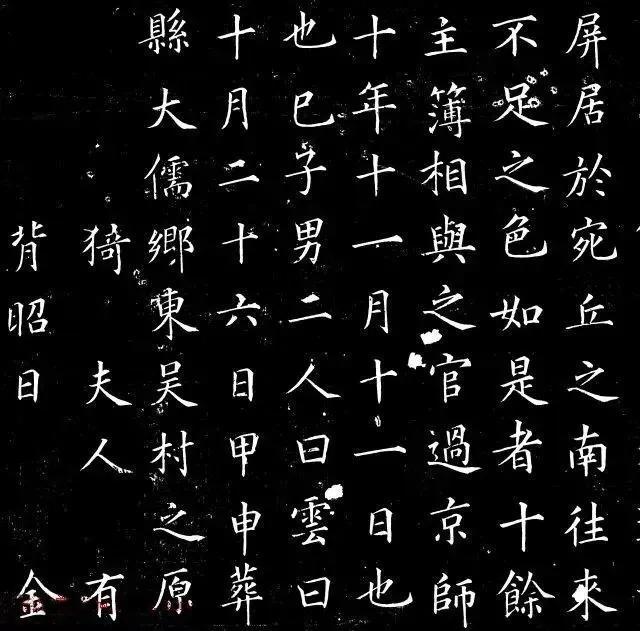 屏居於宛丘之南往來
不足之色如是者十餘
主簿相與之官過京師
十年十一月十一日也
也巳子男二人曰雲曰
十月二十六日甲申葬
縣大儒鄉東吳村之原
猗 夫人 有
背昭日 金